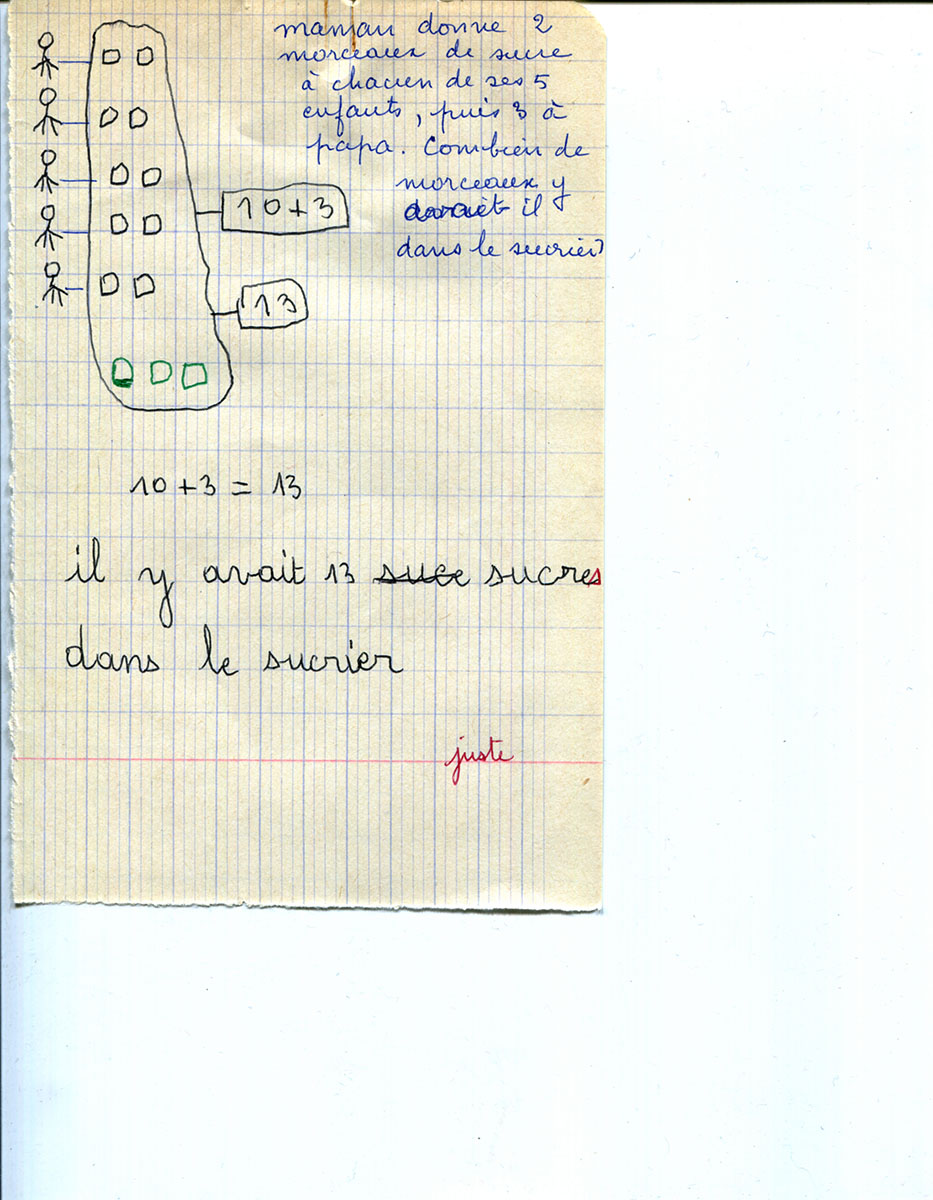 maman donne 2
morceaux de sucre
à chacun de ses 5
enfants, puis 3 à
papa. Combien de
morceaux y
avait il
dans le sucrier?
10+3
13
10+3 = 13
il y avait 13 suce sucres
dans le sucrier
juste